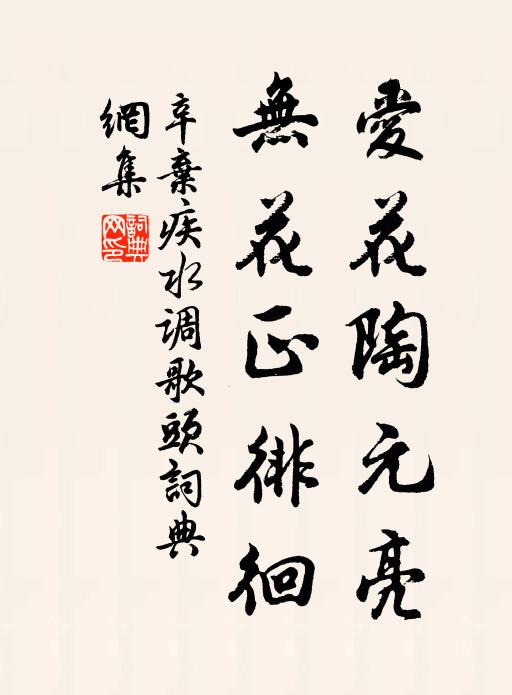 愛花陶元亮
無花正徘徊
辛棄疾水调歌頭詞典
網集
詞典
网印